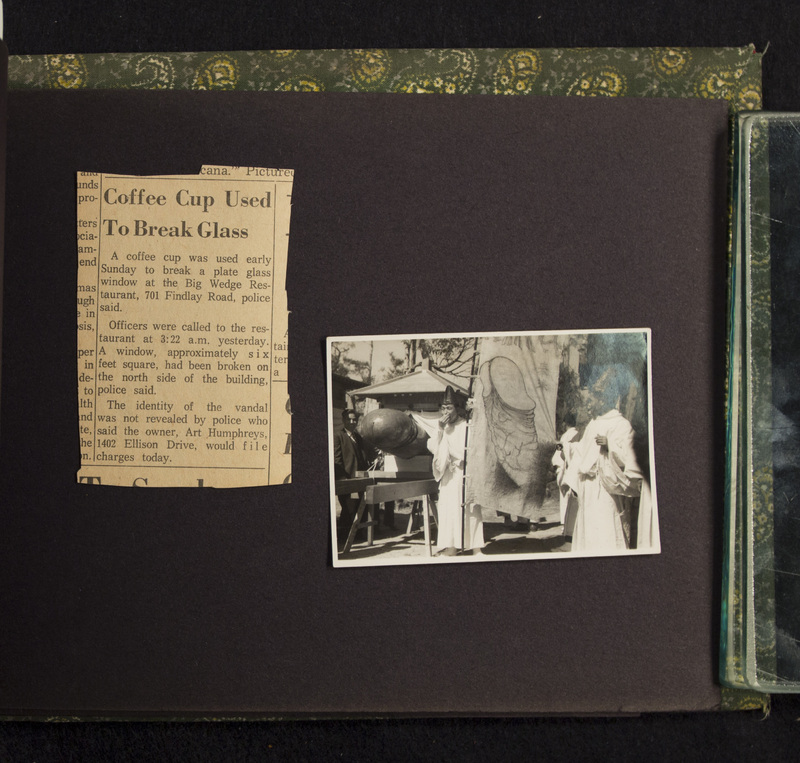 cana." Pictured
Coffee Cup Used
To Break Glass
A coffee cup was used early
Sunday to break a plate glass
window at the Big Wedge Res-
taurant, 701 Findlay Road, police
said.
Officers were called to the res-
taurant at 3:22 a.m. yesterday.
A window, approximately six
feet square, had been broken on
the north side of the building,
police said.
The identity of the vandal
was not revealed by police who
said the owner, Art Humphreys,
1402 Ellison Drive, would file
charges today.
and
unds
pro-
ters
ocia-
am-
end
mas
ugh
e in
osis,
per
in
de-
to
lth
and
te,
he
on.
tai
ter
a